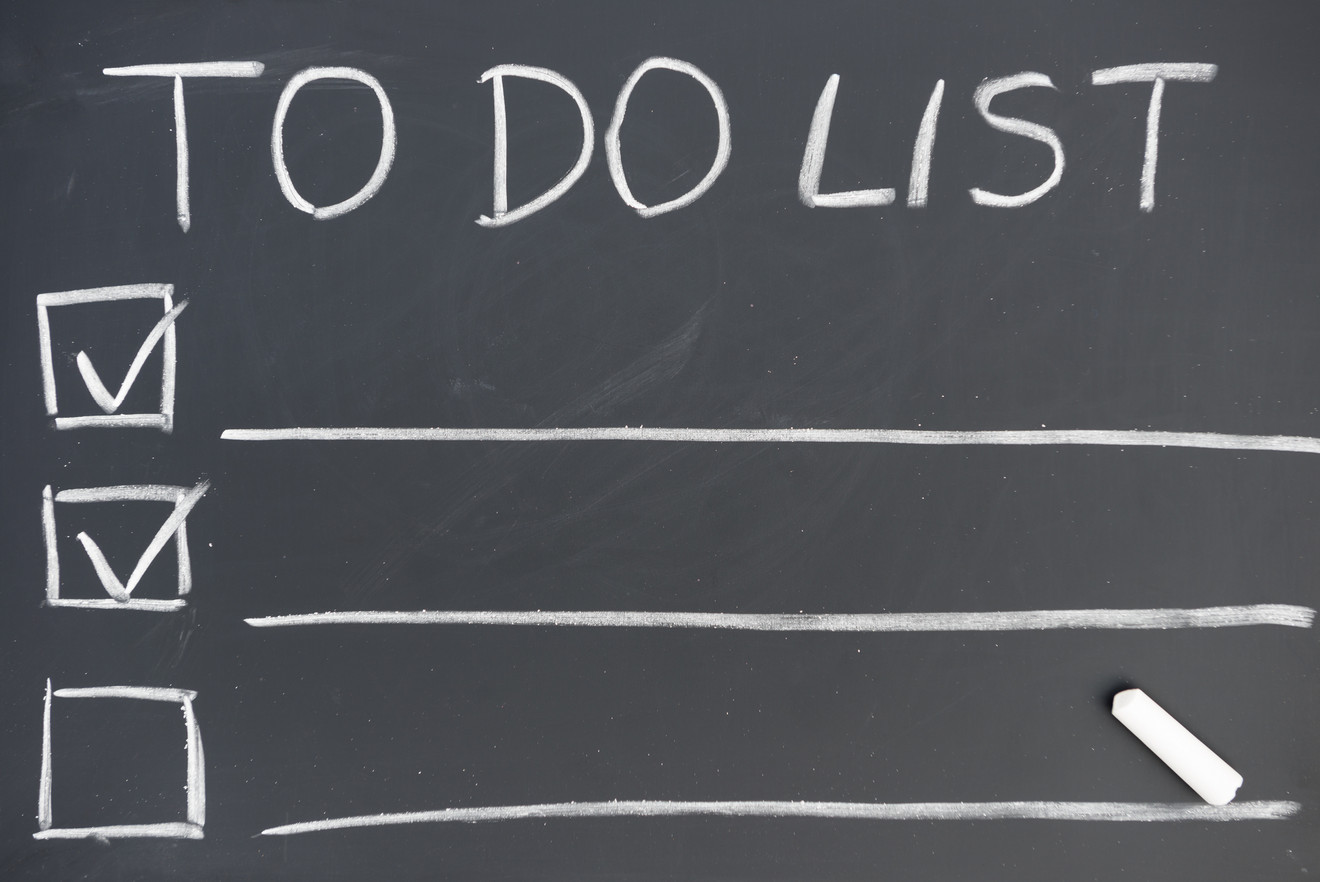 TO DO LIST